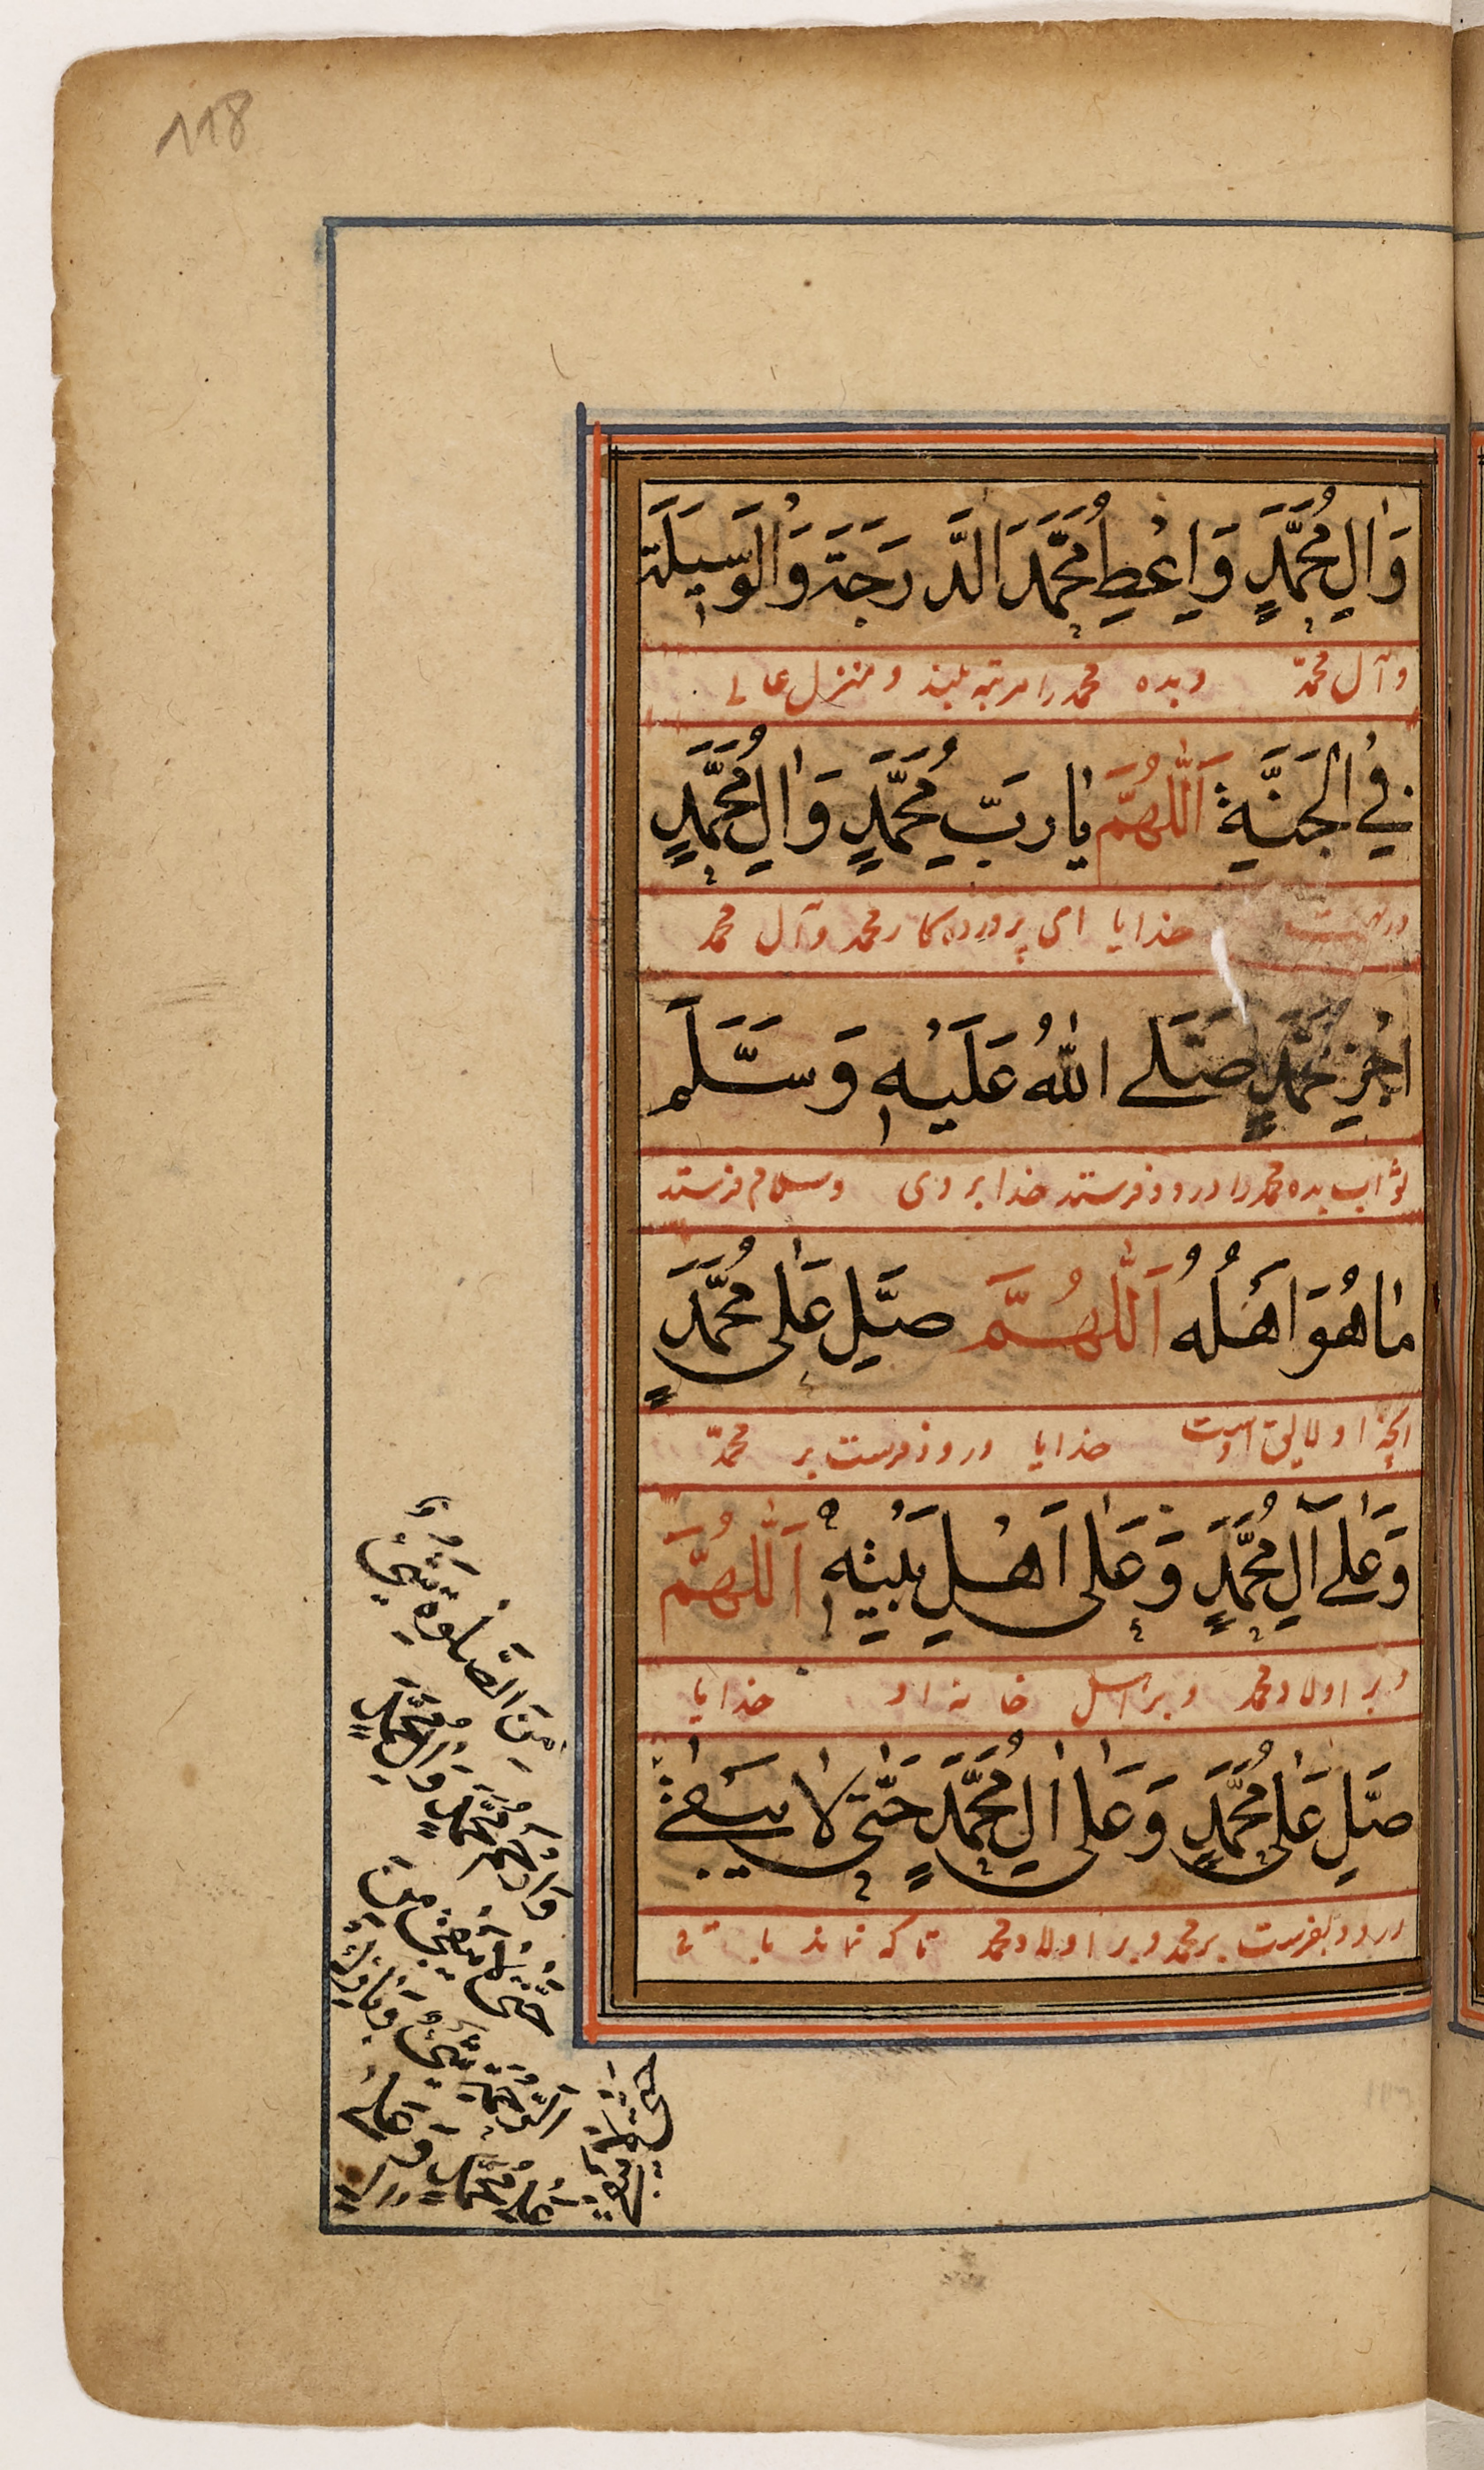 118
وَاٰلِ مُحَمَّدٍ وَاَعْطِ مُحَمَّدَ الدَّرَجَةَ وَالْوَسِيْلَةَ
وآل محمّد وبده محمد را مرتبه بلند و منزل عالی
فِي الْجَنَّةِ اَللّٰهُمَّ يَا رَبِّ مُحَمَّدٍ وَاٰلِ مُحَمَّدٍ
در بهشت خدایا ای پروردکار محمد وآل محمد
اجْزِ مُحَمَّدٍ صَلَّے اللّٰهُ عَلَيْهِ وَسَلَّمَ
ثواب بده محمد را درود فرستد خدا بر وی وسلام فرستد
مٰا هُوَ اَهْلُهُ اَللّٰهُمَّ صَلِّ عَلٰى مُحَمَّدٍ
انچه او لایق اوست خدایا درود فرست بر محمدّ
وَعَلٰے آلِ مُحَمَّدٍ وَعَلٰى اَهْلِ بَيْتِهٖ اَللّٰهُمَّ
و بر اولاد محمد و بر اهل خانه او خدایا
صَلِّ عَلٰى مُحَمَّدٍ وَعَلٰى اٰلِ مُحَمَّدٍ حَتّٰى لَا يَبْقٰى
درود بفرست بر محمد و بر اولاد محمد تا که نماند باقی
مِنَ الصَّلٰوةِ شَيْءٌ
وَارْحَمْ مُحَمَّدٍ وَاٰلِ مُحَمَّدٍ
حَتّٰى لَا يَبْقٰى مِنَ
الرَّحْمَةِ شَيْءٌ وَبَارِكْ
عَلٰى مُحَمَّدٍ وَعَلٰى اٰلِ
حَتّٰى لَا يَبْقٰى